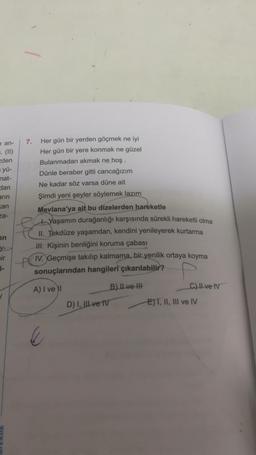 7. Her gün bir yerden göçmek ne iyi
Her gün bir yere konmak ne güzel
Bulanmadan akmak ne hoş
Dünle beraber gitti cancağızım
Ne kadar söz varsa düne ait
Şimdi yeni şeyler söylemek lazım
Mevlana'ya ait bu dizelerden hareketle
I. Yaşamın durağanlığı karşısında sürekli hareketli olma
II. Tekdüze yaşamdan, kendini yenileyerek kurtarma
III. Kişinin benliğini koruma çabası
IV. Geçmişe takılıp kalmama, bir yenilik ortaya koyma
sonuçlarından hangileri çıkarılabilir?
A) I ve II B) II ve III C) II ve IV
D) I, III ve IV E) I, II, III ve IV